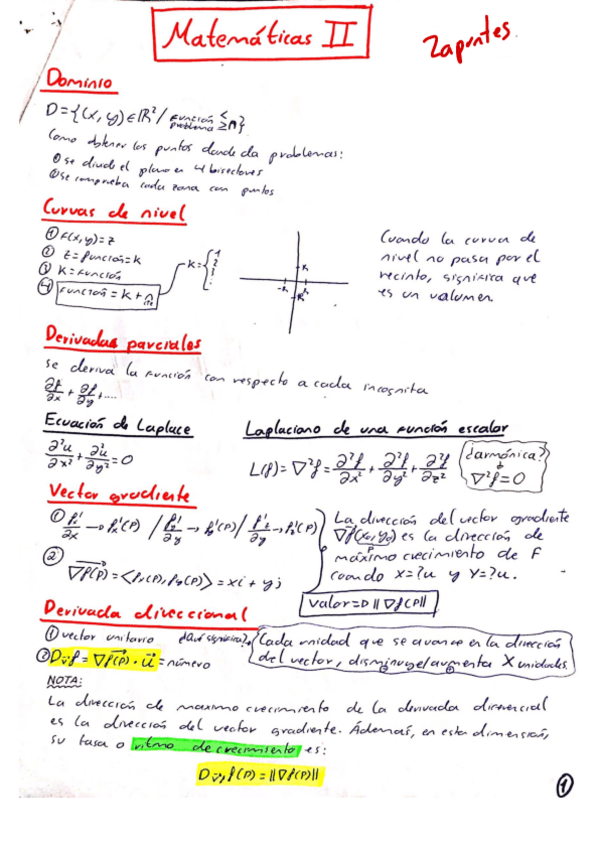 Matemáticas II
Zapuntes
Dominio
D={(x,y)∈ℝ²/ función problema ≤ ≥ n}
Como obtener los puntos donde da problemas:
① se divide el plano en 4 bisectores
② se comprueba cada zona con puntos
Curvas de nivel
① F(x,y)=z
② z=función=k
③ K=Función
④ Función = k + n
K={ 1 2 3 ⋮
-K₁ K₁ K₁ -K₁
Cuando la curva de
nivel no pasa por el
recinto, significa que
es un volumen.
Derivadas parciales
se deriva la función con respecto a cada incognita
∂f/∂x + ∂f/∂y + ....
Ecuación de Laplace
∂²u/∂x² + ∂²u/∂y² = 0
Laplaciano de una función escalar
L(f)=∇²f= ∂²f/∂x² + ∂²f/∂y² + ∂²f/∂z²
¿armónica?
∇²f=0
Vector gradiente
① f'x/∂x → f'x(P) / f'y/∂y → f'y(P) / f'z/∂y → f'z(P)
② ∇f(P) = <fx(P), fy(P)> = xi + yj
La dirección del vector gradiente
∇f(x₀,y₀) es la dirección de
P
máximo crecimiento de F
cuando X=?u y Y=?u.
Valor=D ||∇f(P)||
Derivada direccional
① vector unitario ¿Qué significa?
② Dv⃗f = ∇f(P) · u⃗ = número
Cada unidad que se avance en la dirección
del vector, disminuye/aumenta X unidades
NOTA:
La dirección de maximo crecimiento de la derivada direrencial
es la dirección del vector gradiente. Además, en esta dimensión,
su tasa o ritmo de crecimiento es:
Dv⃗ f(P) = ||∇f(P)||
1